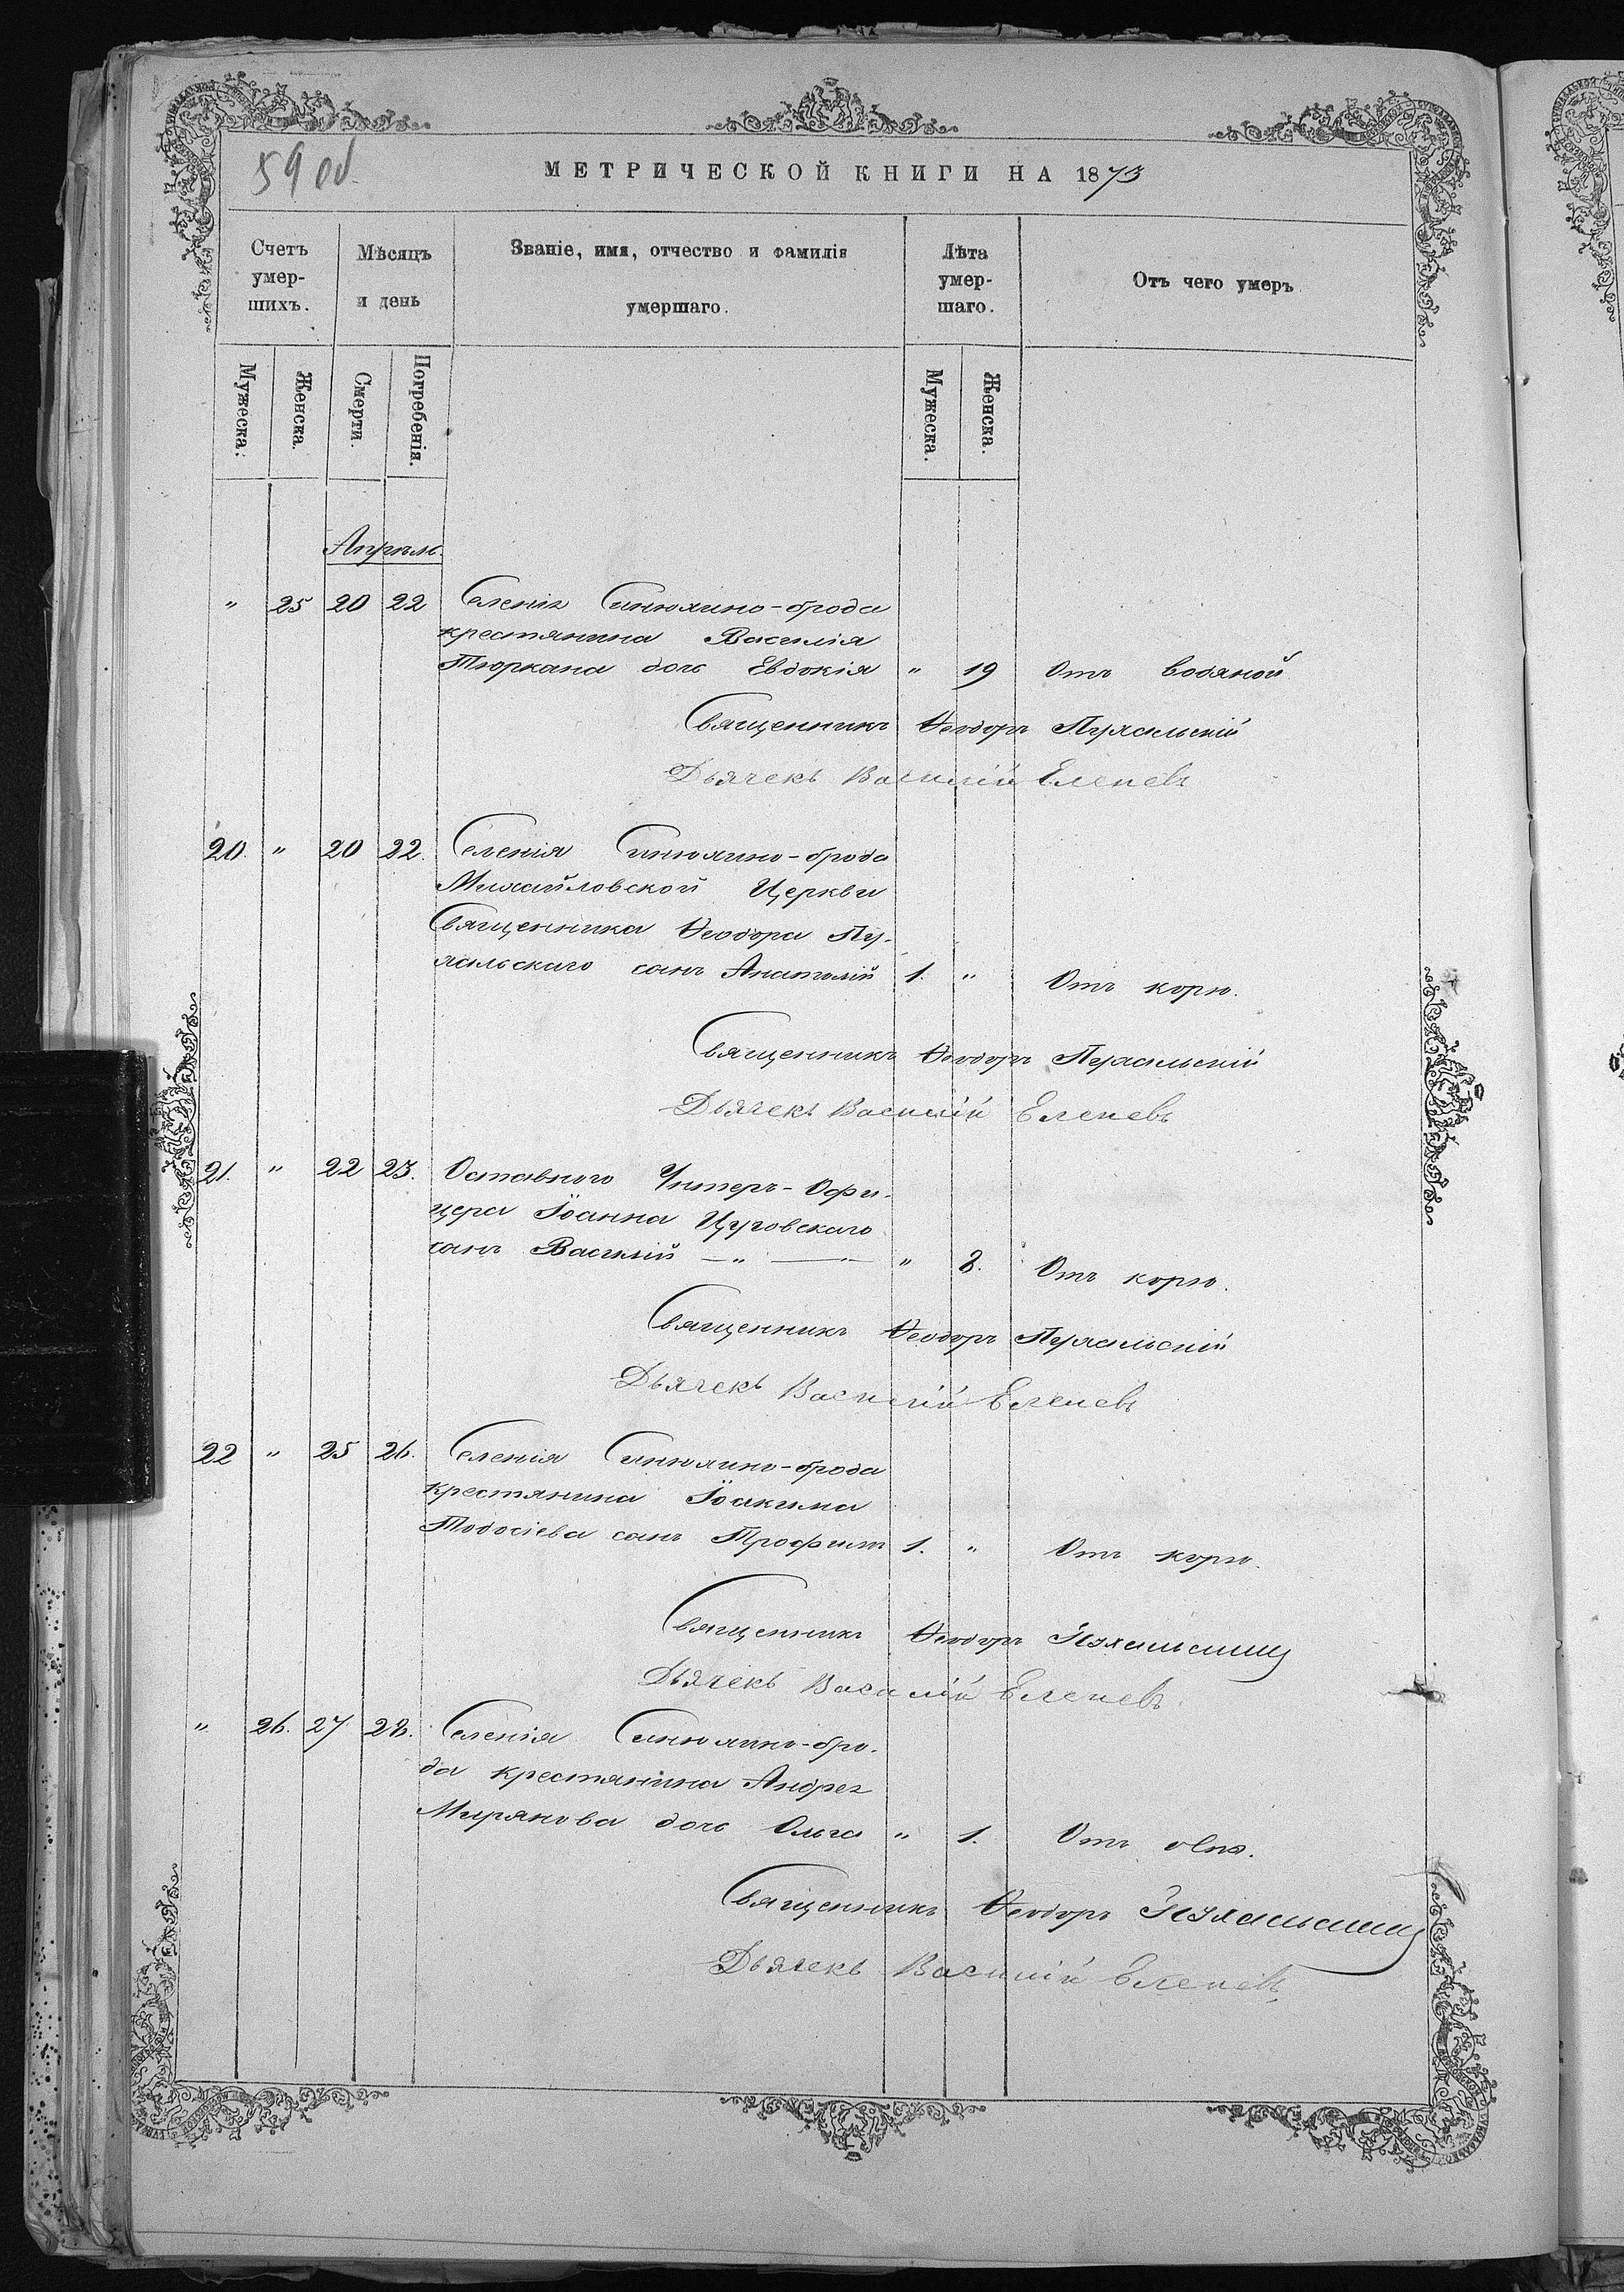 59 об.
МЕТРИЧЕСКОЙ КНИГИ НА 1873
Счетъ умер-шихъ.
Мѣсяцъ и день
Званіе, имя, отчество и фамилія умершаго.
Лѣта умер-шаго.
Отъ чего умеръ
Мужеска. Женска. Смерти. Погребенія. Мужеска. Женска.
Апрѣль.
" 25 20 22 Селенія Синюхино-брода
крестянина Василія
Тюркана дочь Евдокія " 19 Отъ водяной
Священникъ Ѳеодоръ Пухальскій
Дьячекъ Василій Еленевъ
20. " 20 22. Селенія Синюхино-брода
Михайловской Церкви
Священника Ѳеодора Пу-
хальскаго сынъ Анатолій 1. " Отъ корю.
Священникъ Ѳеодоръ Пухальскій
Дьячекъ Василій Еленевъ
21. " 22 23. Оставного Унтеръ-Офи-
цера Іоанна Цуровскаго
сынъ Василій — " — " 8. Отъ корю.
Священникъ Ѳеодоръ Пухальскій
Дьячекъ Василій Еленевъ
22 " 25 26. Селенія Синюхино-брода
крестянина Іоакима
Тодосіева сынъ Трофимъ 1. " Отъ корю.
Священникъ Ѳеодоръ Пухальскій
Дьячекъ Василій Еленевъ
" 26. 27 28. Селенія Синюхино-бро-
да крестянина Андрея
Мирянова дочь Ольга " 1. Отъ оспы.
Священникъ Ѳеодоръ Пухальскій
Дьячекъ Василій Еленевъ